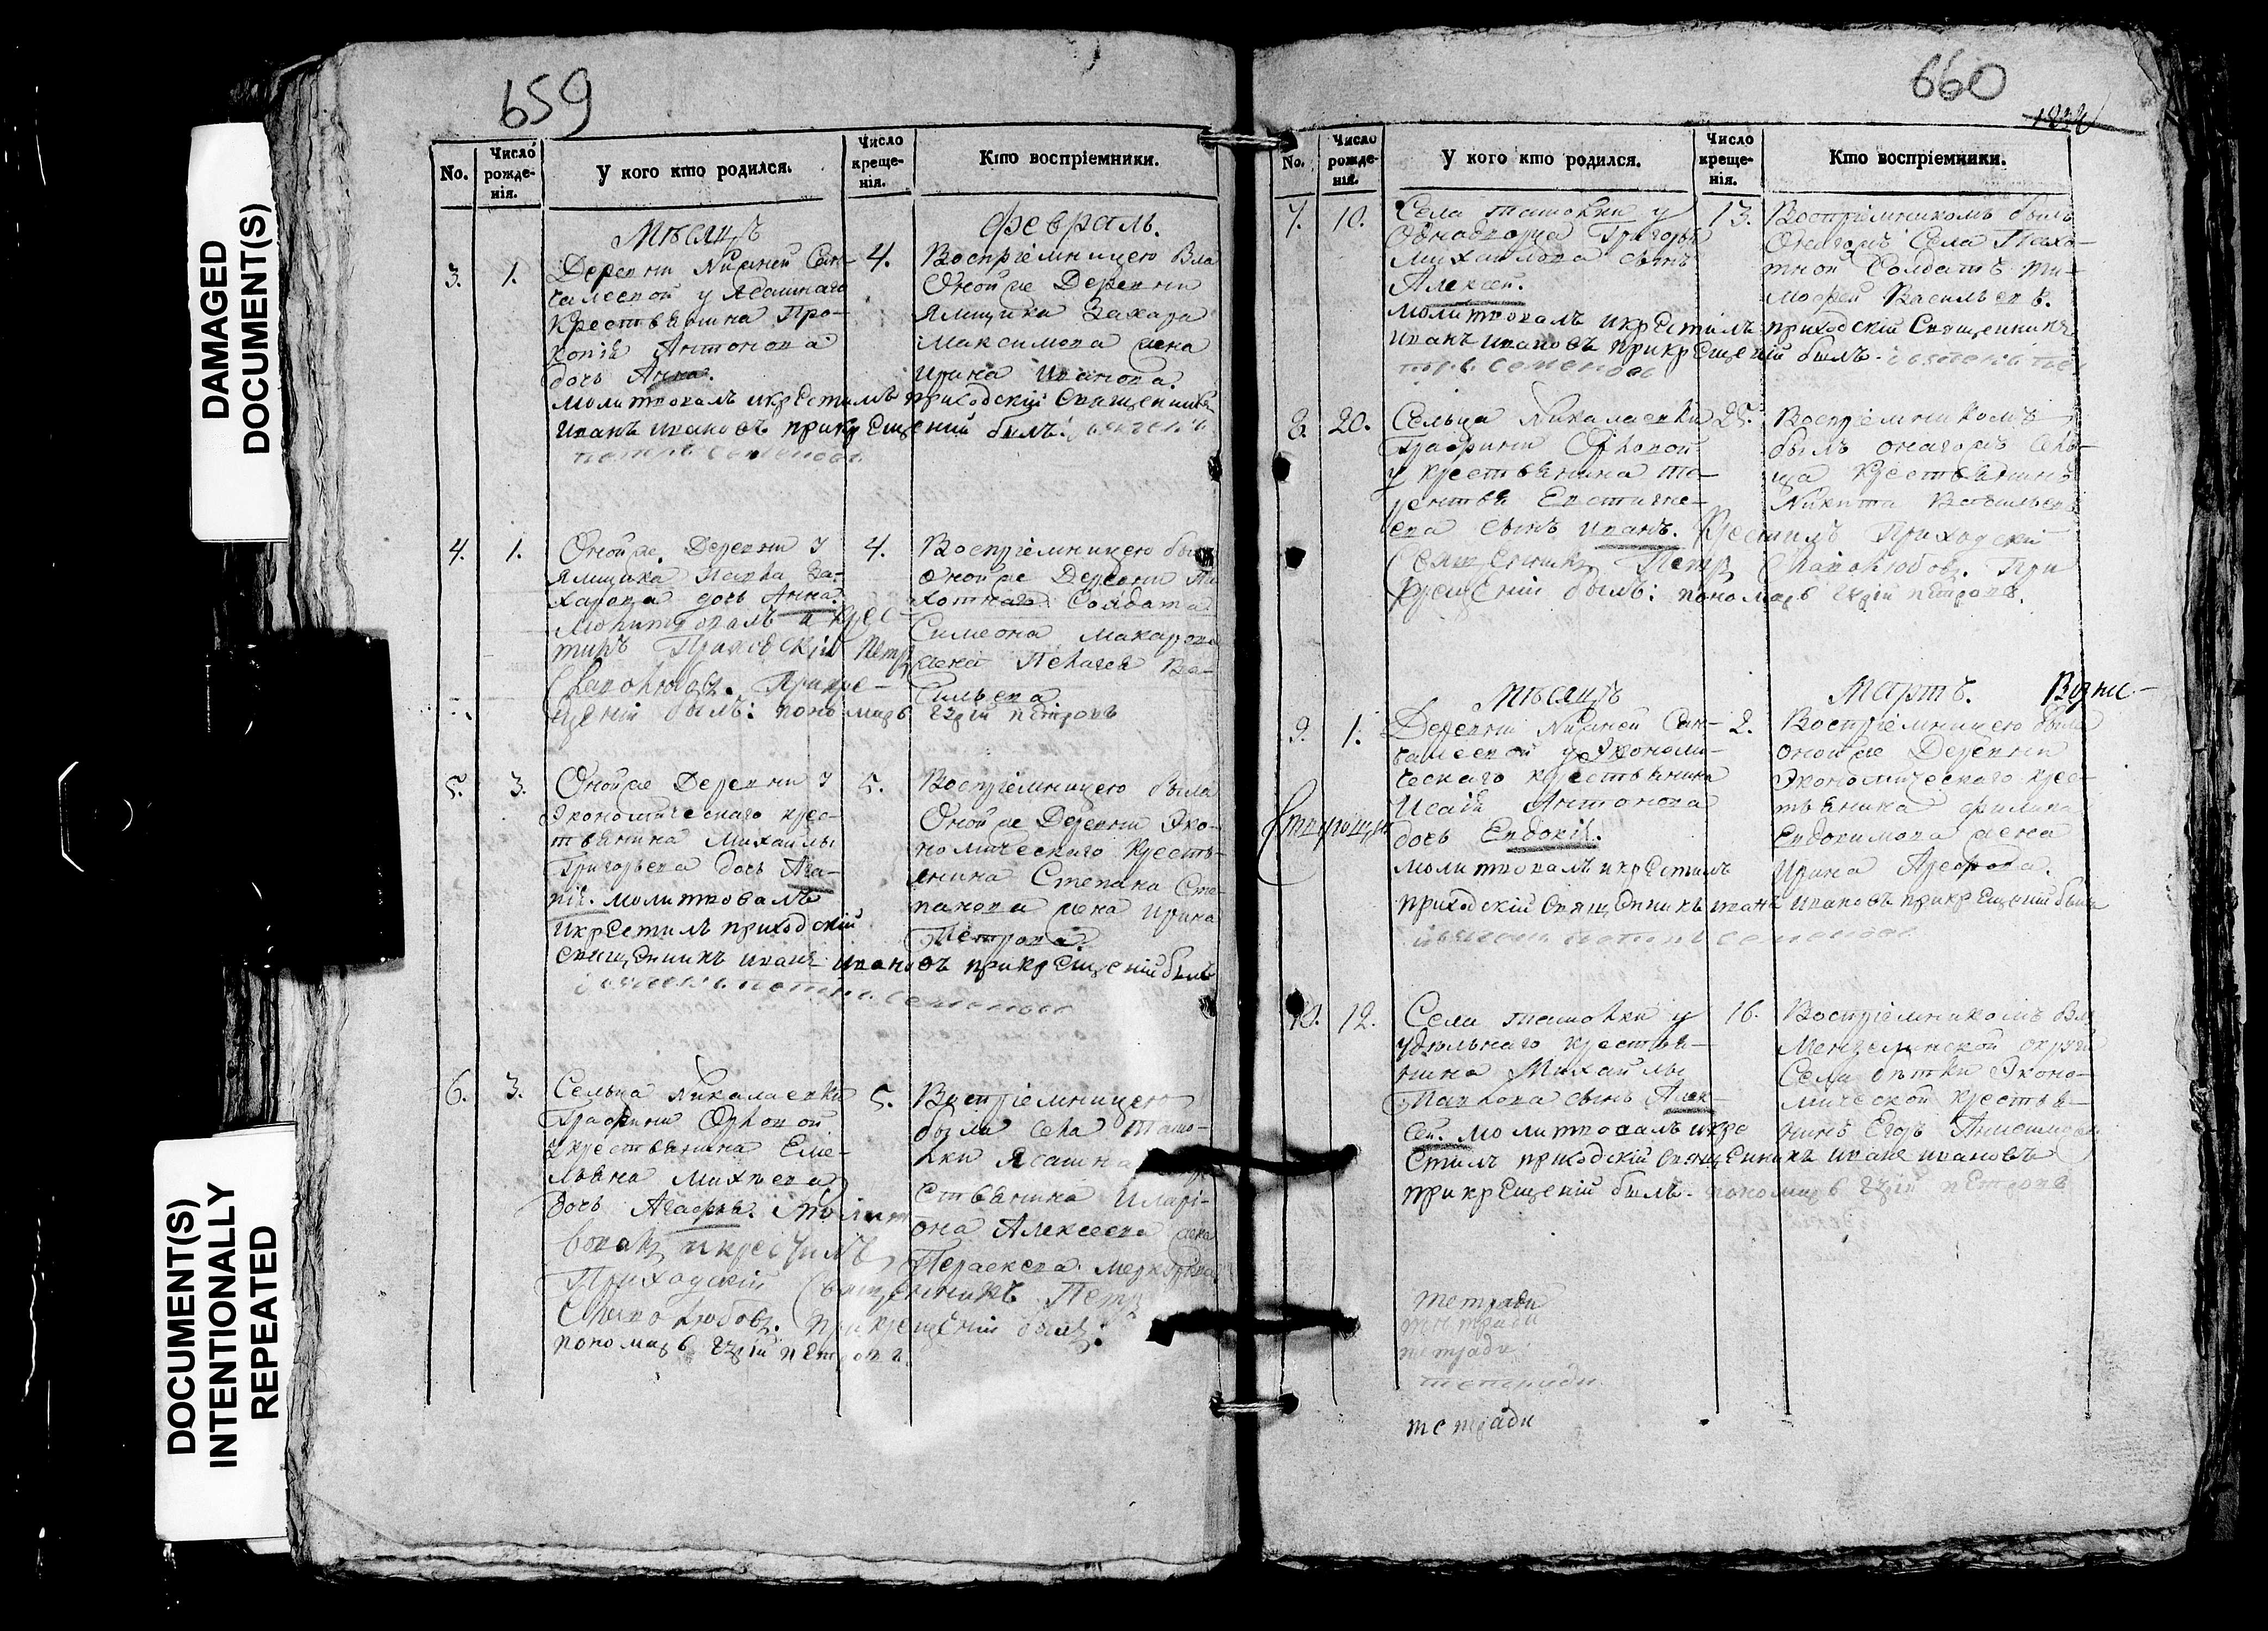 DAMAGED
DOCUMENT(S)
DOCUMENT(S)
INTENTIONALLY
REPEATED
659
No.
Число рожде-нія.
У кого кто родился.
Число креще-нія.
Кто воспріемники.
Мѣсяцъ
Февраль.
3. 1.
Деревни Нижней Сан-
чалеевой у Ясашнаго
Крестьянина Про-
копія Антонова
дочь Анна.
молитвовалъ и крестилъ приходскій Священникъ
Иванъ Ивановъ при крещеніи былъ:
Семеновъ
4.
Воспріемницею была
Оной же Деревни
Ямщика Захара
Максимова жена
Ирина Иванова.
4. 1.
Оной же Деревни у
Ямщика Павла За-
харова дочь Анна.
Молитвовалъ и крес-
тилъ Приходскій Петръ
При кре-
щеніи былъ: пономарь Петровъ
4.
Воспріемницею была
оной же Деревни
Солдата
Симеона Макарова
жена Пелагея Ва-
сильева
5. 3.
Оной же Деревни у
Экономическаго крес-
тьянина Михайлы
Григорьева дочь Ага-
пія. молитвовалъ
и крестилъ приходскій
Священникъ Иванъ Ивановъ при крещеніи былъ
Семеновъ
5.
Воспріемницею была
Оной же Деревни Эко-
номическаго Кресть-
янина Степана Сте-
панова жена Ирина
Петрова.
6. 3.
Сельца Никалаевки
Графини Орловой
у крестьянина Еме-
льяна Михѣева
дочь Агафья. Молит-
вовалъ и крестилъ
Приходскій Священникъ Петръ
при крещеніи былъ:
пономарь Петровъ
5.
Воспріемницею
была Села Ташо-
лки Ясашна
стьянина Иларі-
она Алексеева жена
Параскева
660
No.
Число рожде-нія.
У кого кто родился.
Число креще-нія.
Кто воспріемники.
7. 10.
Села Ташолки у
Однодворца Григорья
Михайлова сынъ
Алексей.
молитвовалъ и крестилъ приходскій Священникъ
Иванъ Ивановъ при крещеніи былъ.
Семеновъ
13.
Воспріемникомъ былъ
Онагожъ Села Пехо-
тной Солдатъ Ти-
мофей Васильевъ.
8. 20.
Сельца Никалаевки
Графини Орловой
у крестьянина Те-
рентья Евстигне-
ева сынъ Иванъ. Крестилъ Приходскій
Священникъ Петръ При
крещеніи былъ: пономарь Петровъ.
25.
Воспріемникомъ
былъ онагожъ Сель-
ца Крестьянинъ
Никита Васильевъ
Мѣсяцъ
Мартъ.
9. 1.
Деревни Нижней Сан-
чалеевой у Экономи-
ческаго крестьянина
Исаія Антонова
дочь Евдокія.
молитвовалъ и крестилъ
приходскій Священникъ Иванъ Ивановъ при крещеніи былъ
Семеновъ
2.
Воспріемницею была
оной же Деревни
Экономическаго крес-
тьянина Филипа
Евдокимова жена
Ирина
10. 12.
Села Ташолки у
Удѣльнаго крестья-
нина Михайлы
Павлова сынъ Алек-
сей. молитвовалъ и кре
стилъ приходскій Священникъ Иванъ Ивановъ
при крещеніи былъ. пономарь Петровъ
16.
Воспріемникомъ былъ
Мензелинской округи
Села Эконо-
мической Крестья-
нинъ Егоръ
тетради
тетради
тетради
тетради
тетради